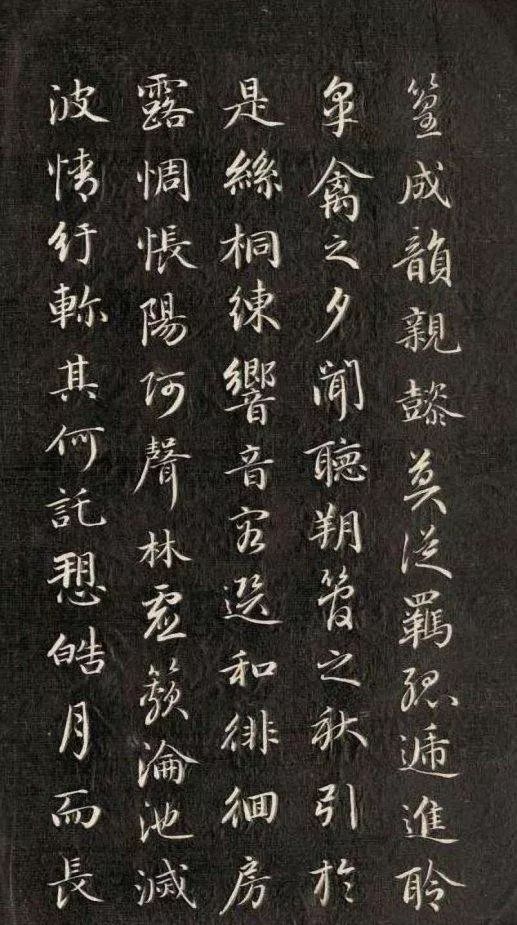 篁成韻親懿莫從羈孤遞進聆
皋禽之夕聞聽朔管之秋引於
是絲桐練響音容選和徘徊房
露惆悵陽阿聲林虛籟淪池滅
波情紆軫其何託愬皓月而長